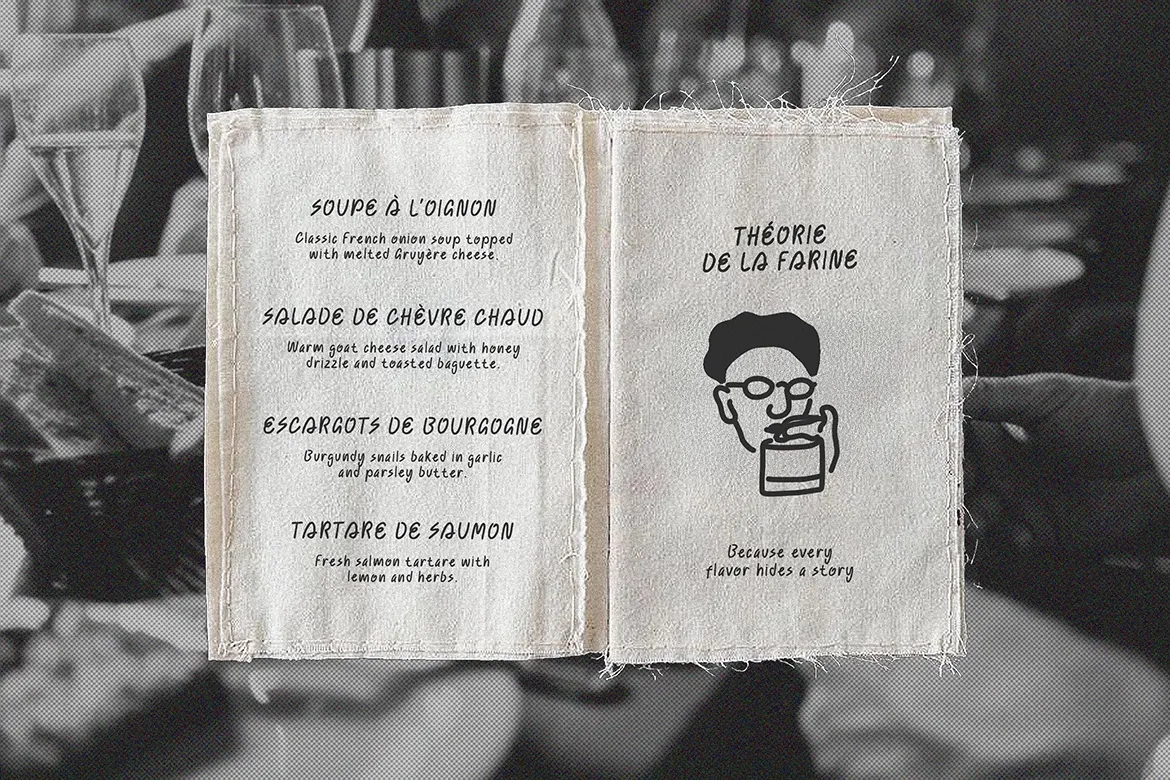 SOUPE À L'OIGNON
Classic French onion soup topped
with melted Gruyère cheese.
SALADE DE CHÈVRE CHAUD
Warm goat cheese salad with honey
drizzle and toasted baguette.
ESCARGOTS DE BOURGOGNE
Burgundy snails baked in garlic
and parsley butter.
TARTARE DE SAUMON
Fresh salmon tartare with
lemon and herbs.
THÉORIE
DE LA FARINE
Because every
flavor hides a story